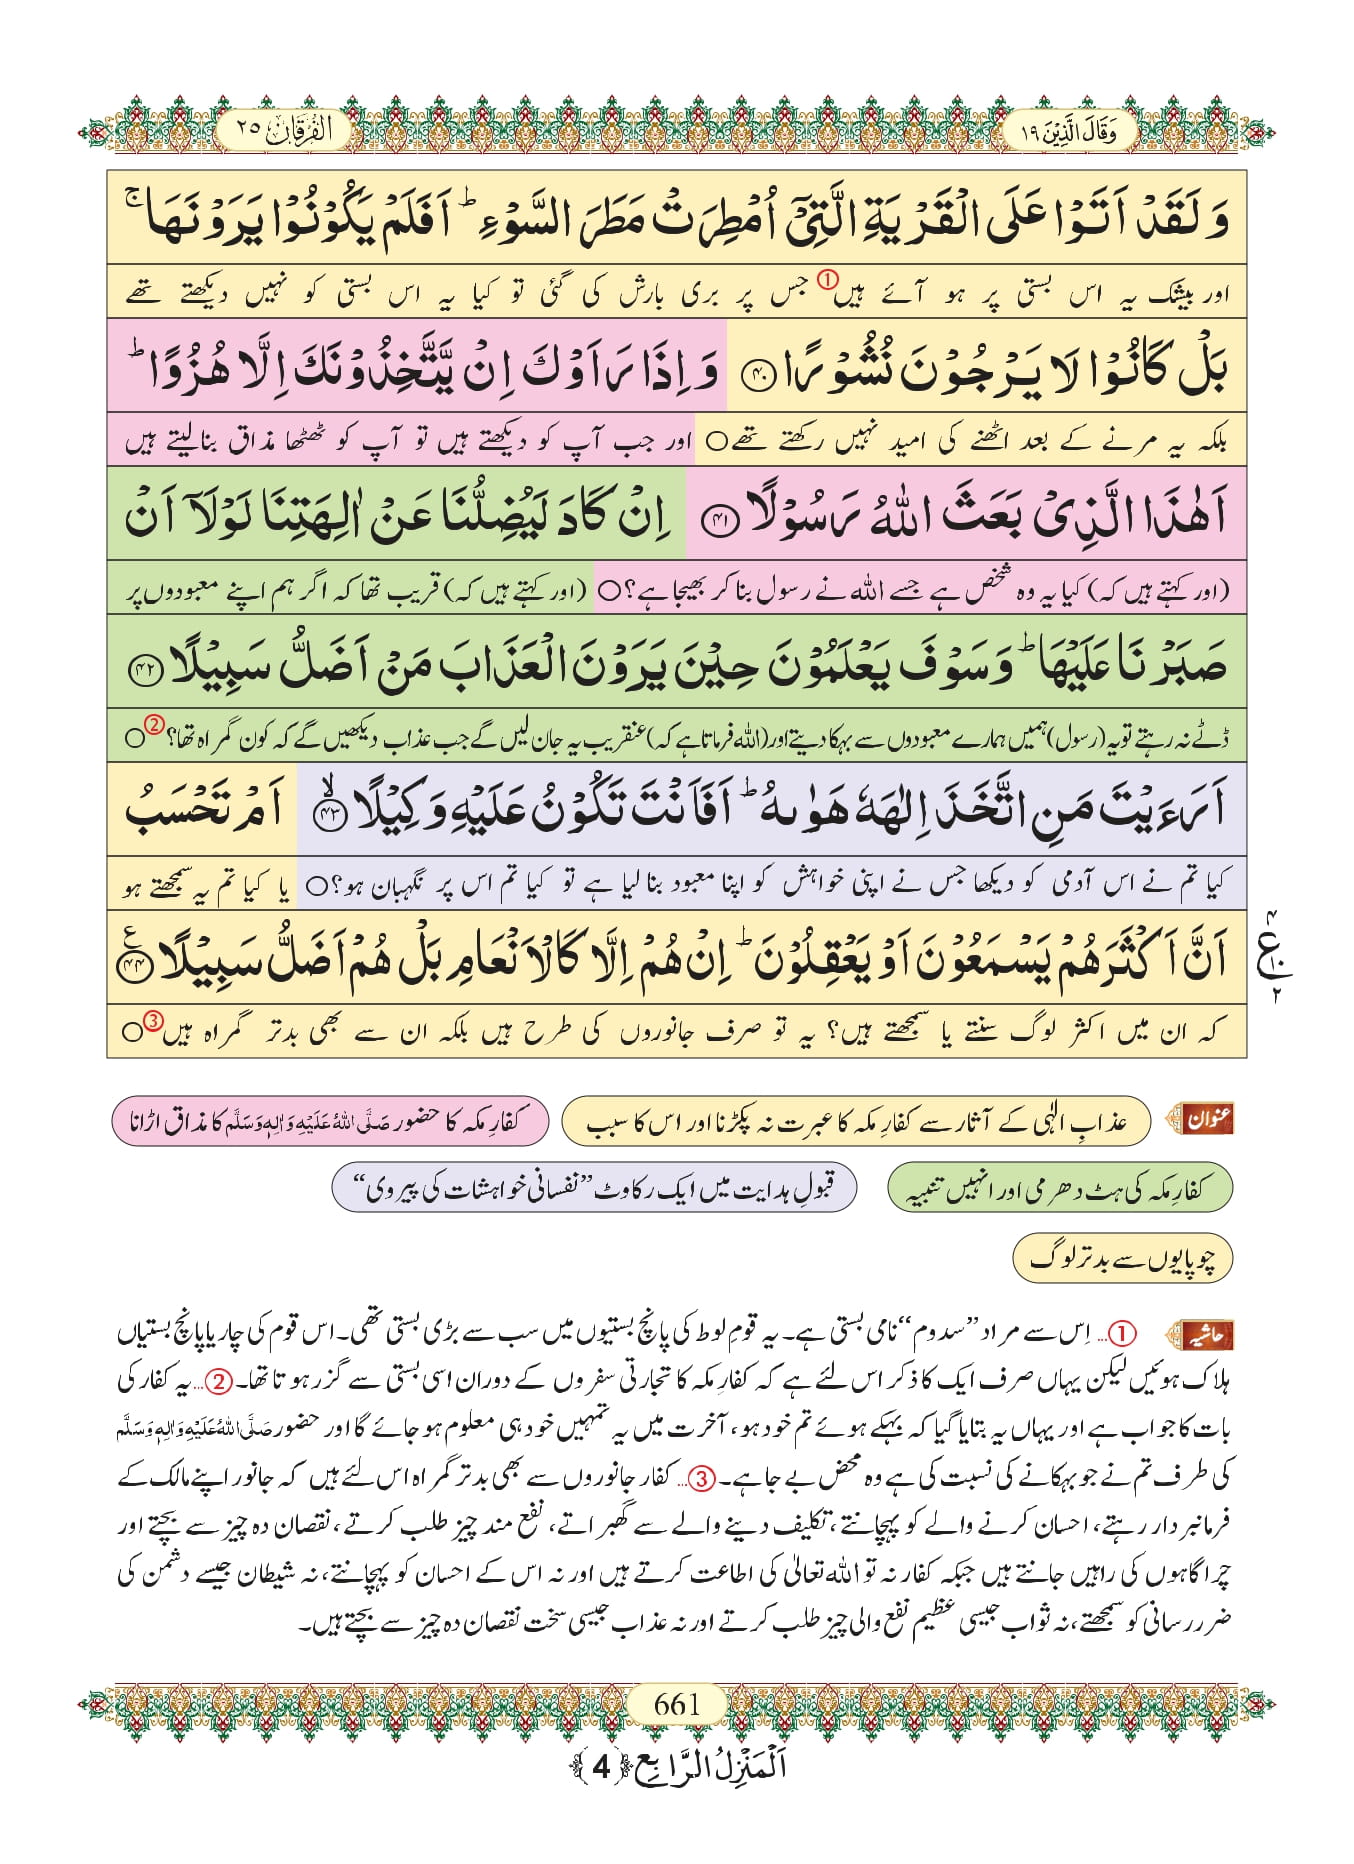 وَقَالَ الَّذِیْنَ ۱۹
الْفُرْقَان ۲۵
وَ لَقَدْ اَتَوْا عَلَى الْقَرْیَةِ الَّتِیْۤ اُمْطِرَتْ مَطَرَ السَّوْءِؕ اَفَلَمْ یَكُوْنُوْا یَرَوْنَهَاۚ
اور بیشک یہ اس بستی پر ہو آئے ہیں① جس پر بری بارش کی گئی تو کیا یہ اس بستی کو نہیں دیکھتے تھے
بَلْ كَانُوْا لَا یَرْجُوْنَ نُشُوْرًا ﴿۴۰﴾ وَ اِذَا رَاَوْكَ اِنْ یَّتَّخِذُوْنَكَ اِلَّا هُزُوًاؕ
بلکہ یہ مرنے کے بعد اٹھنے کی امید نہیں رکھتے تھے○ اور جب آپ کو دیکھتے ہیں تو آپ کو ٹھٹھا مذاق بنالیتے ہیں
اَهٰذَا الَّذِیْ بَعَثَ اللّٰهُ رَسُوْلًا ﴿۴۱﴾ اِنْ كَادَ لَیُضِلُّنَا عَنْ اٰلِهَتِنَا لَوْلَاۤ اَنْ
(اور کہتے ہیں کہ) کیا یہ وہ شخص ہے جسے اللہ نے رسول بنا کر بھیجا ہے؟○ (اور کہتے ہیں کہ) قریب تھا کہ اگر ہم اپنے معبودوں پر
صَبَرْنَا عَلَیْهَاؕ وَ سَوْفَ یَعْلَمُوْنَ حِیْنَ یَرَوْنَ الْعَذَابَ مَنْ اَضَلُّ سَبِیْلًا ﴿۴۲﴾
ڈٹے نہ رہتے تو یہ (رسول) ہمیں ہمارے معبودوں سے بہکا دیتے اور (اللہ فرماتا ہے کہ) عنقریب یہ جان لیں گے جب عذاب دیکھیں گے کہ کون گمراہ تھا؟②○
اَرَءَیْتَ مَنِ اتَّخَذَ اِلٰهَهٗ هَوٰىهُؕ اَفَاَنْتَ تَكُوْنُ عَلَیْهِ وَكِیْلًا ﴿ۙ۴۳﴾ اَمْ تَحْسَبُ
کیا تم نے اس آدمی کو دیکھا جس نے اپنی خواہش کو اپنا معبود بنا لیا ہے تو کیا تم اس پر نگہبان ہو؟○ یا کیا تم یہ سمجھتے ہو
اَنَّ اَكْثَرَهُمْ یَسْمَعُوْنَ اَوْ یَعْقِلُوْنَؕ اِنْ هُمْ اِلَّا كَالْاَنْعَامِ بَلْ هُمْ اَضَلُّ سَبِیْلًا ﴿۴۴﴾ع
۴
ع
۱۰
۲
کہ ان میں اکثر لوگ سنتے یا سمجھتے ہیں؟ یہ تو صرف جانوروں کی طرح ہیں بلکہ ان سے بھی بدتر گمراہ ہیں③○
عنوان عذابِ الٰہی کے آثار سے کفارِ مکہ کا عبرت نہ پکڑنا اور اس کا سبب کفارِ مکہ کا حضور صَلَّی اللہُ عَلَیْہِ وَاٰلِہٖ وَسَلَّمَ کا مذاق اڑانا
کفارِ مکہ کی ہٹ دھرمی اور انہیں تنبیہ قبولِ ہدایت میں ایک رکاوٹ ”نفسانی خواہشات کی پیروی“
چوپایوں سے بدتر لوگ
حاشیہ ①... اِس سے مراد ”سدوم“ نامی بستی ہے۔ یہ قومِ لوط کی پانچ بستیوں میں سب سے بڑی بستی تھی۔ اس قوم کی چار یا پانچ بستیاں
ہلاک ہوئیں لیکن یہاں صرف ایک کا ذکر اس لئے ہے کہ کفارِ مکہ کا تجارتی سفروں کے دوران اسی بستی سے گزر ہوتا تھا۔ ②... یہ کفار کی
بات کا جواب ہے اور یہاں یہ بتایا گیا کہ بہکے ہوئے تم خود ہو، آخرت میں یہ تمہیں خود ہی معلوم ہو جائے گا اور حضور صَلَّی اللہُ عَلَیْہِ وَاٰلِہٖ وَسَلَّمَ
کی طرف تم نے جو بہکانے کی نسبت کی ہے وہ محض بے جا ہے۔ ③... کفار جانوروں سے بھی بدتر گمراہ اس لئے ہیں کہ جانور اپنے مالک کے
فرمانبردار رہتے، احسان کرنے والے کو پہچانتے، تکلیف دینے والے سے گھبراتے، نفع مند چیز طلب کرتے، نقصان دہ چیز سے بچتے اور
چراگاہوں کی راہیں جانتے ہیں جبکہ کفار نہ تو اللہ تعالیٰ کی اطاعت کرتے ہیں اور نہ اس کے احسان کو پہچانتے، نہ شیطان جیسے دشمن کی
ضرر رسانی کو سمجھتے، نہ ثواب جیسی عظیم نفع والی چیز طلب کرتے اور نہ عذاب جیسی سخت نقصان دہ چیز سے بچتے ہیں۔
661
اَلْمَنْزِلُ الرَّابِع ﴿4﴾